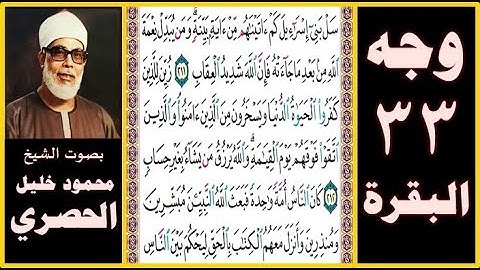 وجه
٣٣
البقرة
سَلْ بَنِىٓ إِسْرَٰٓءِيلَ كَمْ ءَاتَيْنَٰهُم مِّنْ ءَايَةٍۭ بَيِّنَةٍ ۗ وَمَن يُبَدِّلْ نِعْمَةَ
ٱللَّهِ مِنۢ بَعْدِ مَا جَآءَتْهُ فَإِنَّ ٱللَّهَ شَدِيدُ ٱلْعِقَابِ ٢١١ زُيِّنَ لِلَّذِينَ
كَفَرُوا۟ ٱلْحَيَوٰةُ ٱلدُّنْيَا وَيَسْخَرُونَ مِنَ ٱلَّذِينَ ءَامَنُوا۟ ۘ وَٱلَّذِينَ
ٱتَّقَوْا۟ فَوْقَهُمْ يَوْمَ ٱلْقِيَٰمَةِ ۗ وَٱللَّهُ يَرْزُقُ مَن يَشَآءُ بِغَيْرِ حِسَابٍ
٢١٢ كَانَ ٱلنَّاسُ أُمَّةً وَٰحِدَةً فَبَعَثَ ٱللَّهُ ٱلنَّبِيِّـۧنَ مُبَشِّرِينَ
وَمُنذِرِينَ وَأَنزَلَ مَعَهُمُ ٱلْكِتَٰبَ بِٱلْحَقِّ لِيَحْكُمَ بَيْنَ ٱلنَّاسِ
بصوت الشيخ
محمود خليل
الحصري